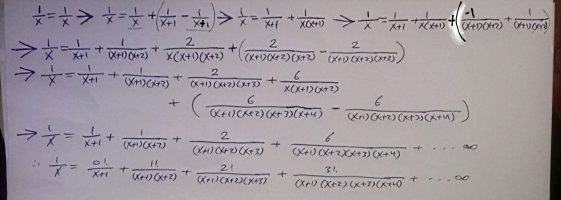 1/x = 1/x → 1/x = 1/x + (1/(x+1) - 1/(x+1)) → 1/x = 1/(x+1) + 1/(x(x+1)) → 1/x = 1/(x+1) + 1/(x(x+1)) + (-1/((x+1)(x+2)) + 1/((x+1)(x+2)))
→ 1/x = 1/(x+1) + 1/((x+1)(x+2)) + 2/(x(x+1)(x+2)) + (2/((x+1)(x+2)(x+3)) - 2/((x+1)(x+2)(x+3)))
→ 1/x = 1/(x+1) + 1/((x+1)(x+2)) + 2/((x+1)(x+2)(x+3)) + 6/(x(x+1)(x+2))
+ (6/((x+1)(x+2)(x+3)(x+4)) - 6/((x+1)(x+2)(x+3)(x+4)))
→ 1/x = 1/(x+1) + 1/((x+1)(x+2)) + 2/((x+1)(x+2)(x+3)) + 6/((x+1)(x+2)(x+3)(x+4)) + .... ∞
∴ 1/x = 0!/(x+1) + 1!/((x+1)(x+2)) + 2!/((x+1)(x+2)(x+3)) + 3!/((x+1)(x+2)(x+3)(x+4)) + .... ∞